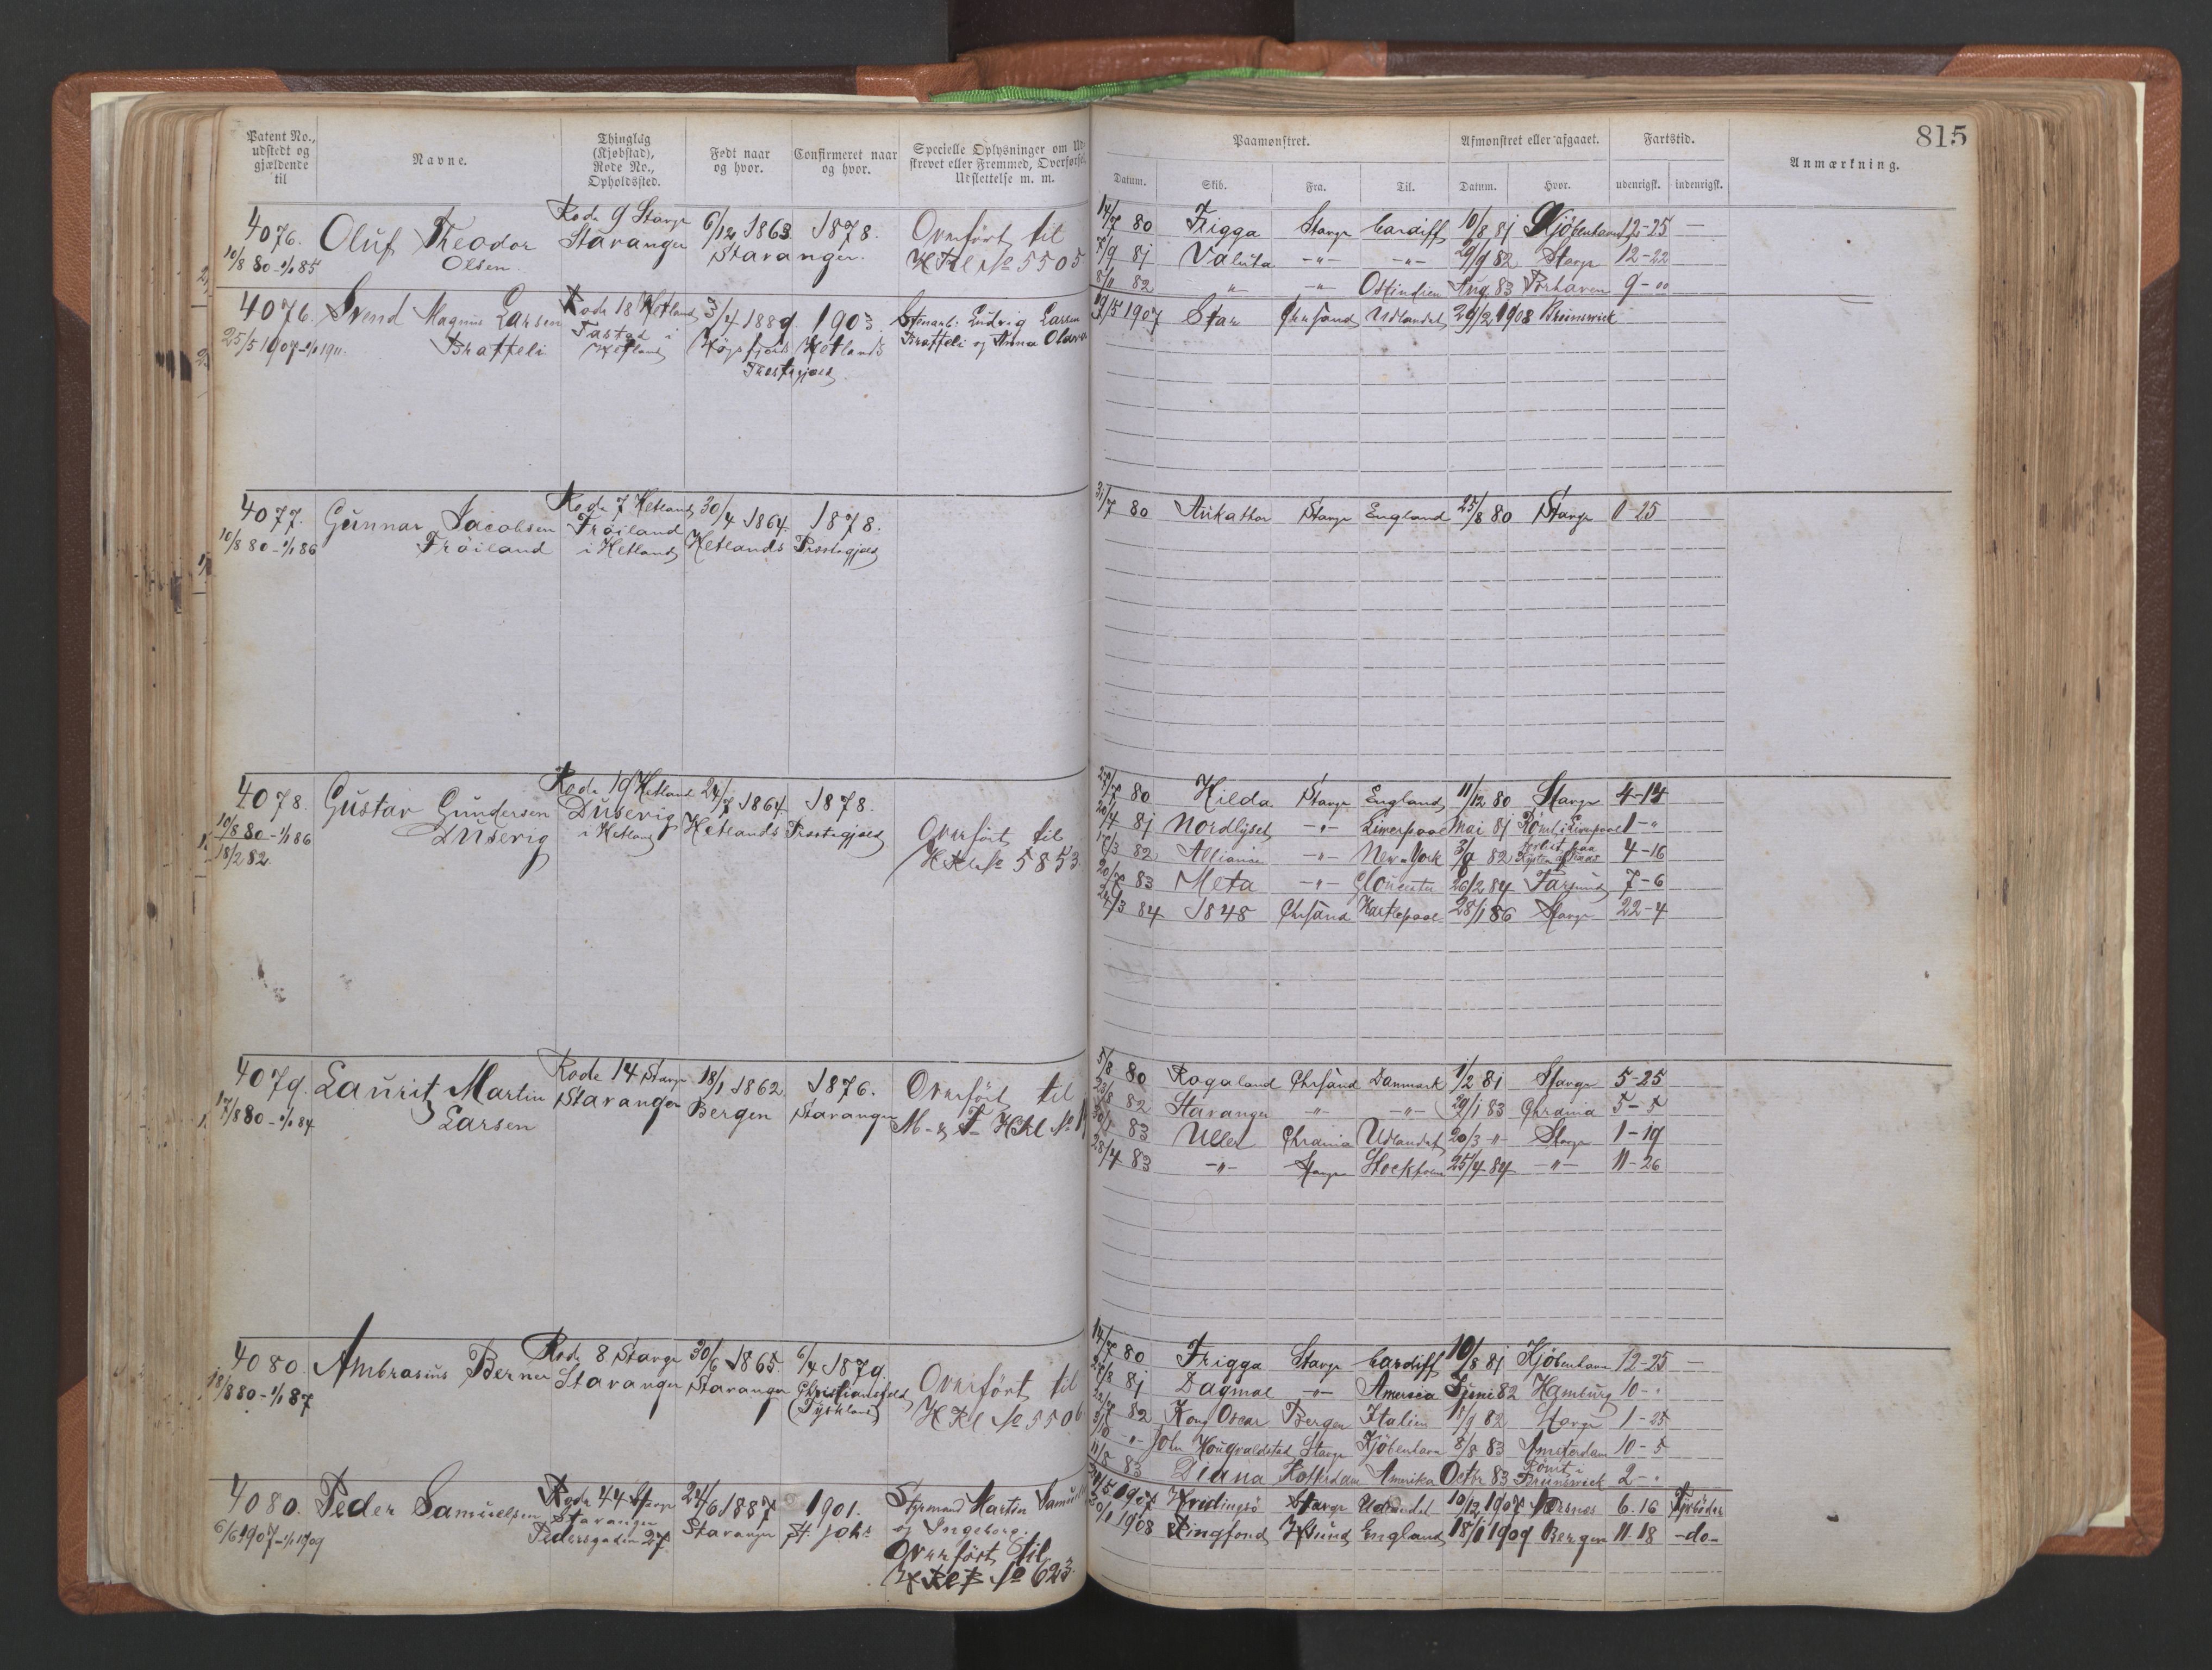 815
Patent No., udstedt og gjældende til
Navne.
Thinglag (Kjøbstad), Rode No., Opholdssted.
Født naar og hvor.
Confirmeret naar og hvor.
Specielle Oplysninger om Ud-
skrevet eller Fremmed, Overførsel,
Udslettelse m. m.
Paamønstret.
Afmønstret eller afgaaet.
Fartstid.
Anmærkning.
Datum. Skib. Fra. Til. Datum. Hvor. udenrigsk. indenrigsk.
4076. Oluf Theodor Rode 9 Stavgr 6/12 1863 1878. Overført til
10/8 80 - 1/1 85 Olsen. Stavanger Stavanger. HKl No 5505
14/7 80 Frigga Stavgr Cardiff 10/8 81 Kjöbenhavn 12-25 —
7/9 81 Valuta -"- -"- 29/9 82 Stavgr 12-22
8/11 82 " -"- Ostindien Aug. 83 9-"
4076. Svend Magnus Larsen Rode 18 Hetland 3/4 1889. 1903. Stenarb: Ludvig Larsen
25/5 1907 - 1/1 1911. Bratteli Tastad i Hetland Høgsfjord Hetlands Bratteli og Anna Olava
Præstegjeld.
19/5 1907 Star Chrsand Udlandet 29/2 1908 Brunswick
4077. Gunnar Jacobsen Rode 7 Hetland 30/4 1864. 1878.
10/8 80 - 1/1 86 Fröiland Fröiland i Hetland Hetlands Præstegjeld
31/7 80 Stavgr England 25/8 80 Stavgr 0-25
4078. Gustav Gundersen Rode 19 Hetland 24/7 1864. 1878.
10/8 80 - 1/1 86 Dusevig Dusevig i Hetland Hetlands Præstegjeld Overført til
18/2 82. HKl No 5853.
80 Hilda Stavgr England 11/12 80 Stavgr 4-14
20/4 81 Nordlyset -"- Liverpool Mai 81 Römt i Liverpool 1-"
82 Alliance -"- New York 3/9 82 Forlist paa Kysten af 4-16
83 Meta -"- Gloucester 26/2 84 Farsund 7-6
24/3 84 1848 Chrsand Hartlepool 28/1 86 Stavgr 22-4
4079. Laurits Martin Rode 14 Stavgr 18/1 1862. 1876. Overført til
17/8 80 - 1/1 84 Larsen Stavanger Bergen Stavanger M- & F- HKl No
5/8 80 Rogaland Chrsand Danmark 1/2 81 Stavgr 5-25
23/8 82 Stavanger -"- -"- 29/1 83 Chrania 5-5
83 Uller Chrania Udlandet 20/3 -"- Stavgr 1-19
28/4 83 -"- Stavgr Stockholm 25/4 84 -"- 11-26
4080. Ambrosius Berner Rode 8 Stavgr 30/6 1865. 6/4 1879.
18/8 80 - 1/1 87 Stavanger Stavanger Christiansfeld (Tyskland) Overført til
HKl No 5506
14/7 80 Frigga Stavgr Cardiff 10/8 81 Kjöbenhavn 12-25 —
81 Dagmar -"- America Juni 82 Hamburg 10-"
82 Kong Oscar Bergen Italien 82 Stavgr 1-25
-"- John Stavgr Kjöbenhavn 8/8 83 Amsterdam 10-5
11/8 83 Diana Rotterdam Amerika Octbr 83 Römt i Brunswick 2-"
4080. Peder Samuelsen Rode 44 Stavgr 24/6 1887 1901. Styrmand Martin Samuels
6/6 1907 - 1/1 1909 Stavanger Stavanger St. Johs og Ingeborg.
Pedersgaden 27. Overført til
No 623.
1907 Stavgr Udlandet 10/12 1907 6.16 Fyrböder
30/1 1908 Ringfond England 18/1 1909 Bergen 11.18 -do-